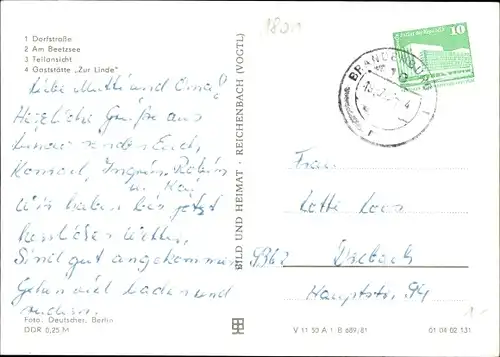 1801
1 Dorfstraße
2 Am Beetzsee
3 Teilansicht
4 Gaststätte „Zur Linde"
Liebe Mutti und Oma!
Herzliche Grüße aus
senden Euch,
Konrad, Ingrid, Robin
u. Kai,
Wir haben bis jetzt
herrliches Wetter,
Sind gut angekommen
Gehen viel baden und
Foto: Deutscher, Berlin
DDR 0,25 M
BILD UND HEIMAT · REICHENBACH (VOGTL)
10
BRANDENBURG
Frau
Lotte Loos
9362 Drebach
Hauptstr. 94
V 11 50 A 1 B 689/81 01 04 02 131